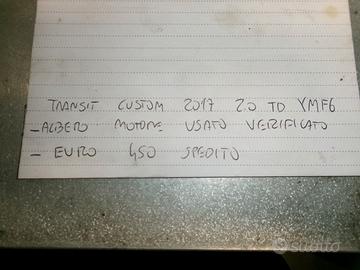 TRANSIT CUSTOM 2017 2.0 TD YMF6
- ALBERO MOTORE USATO VERIFICATO
- EURO 450 SPEDITO
subito